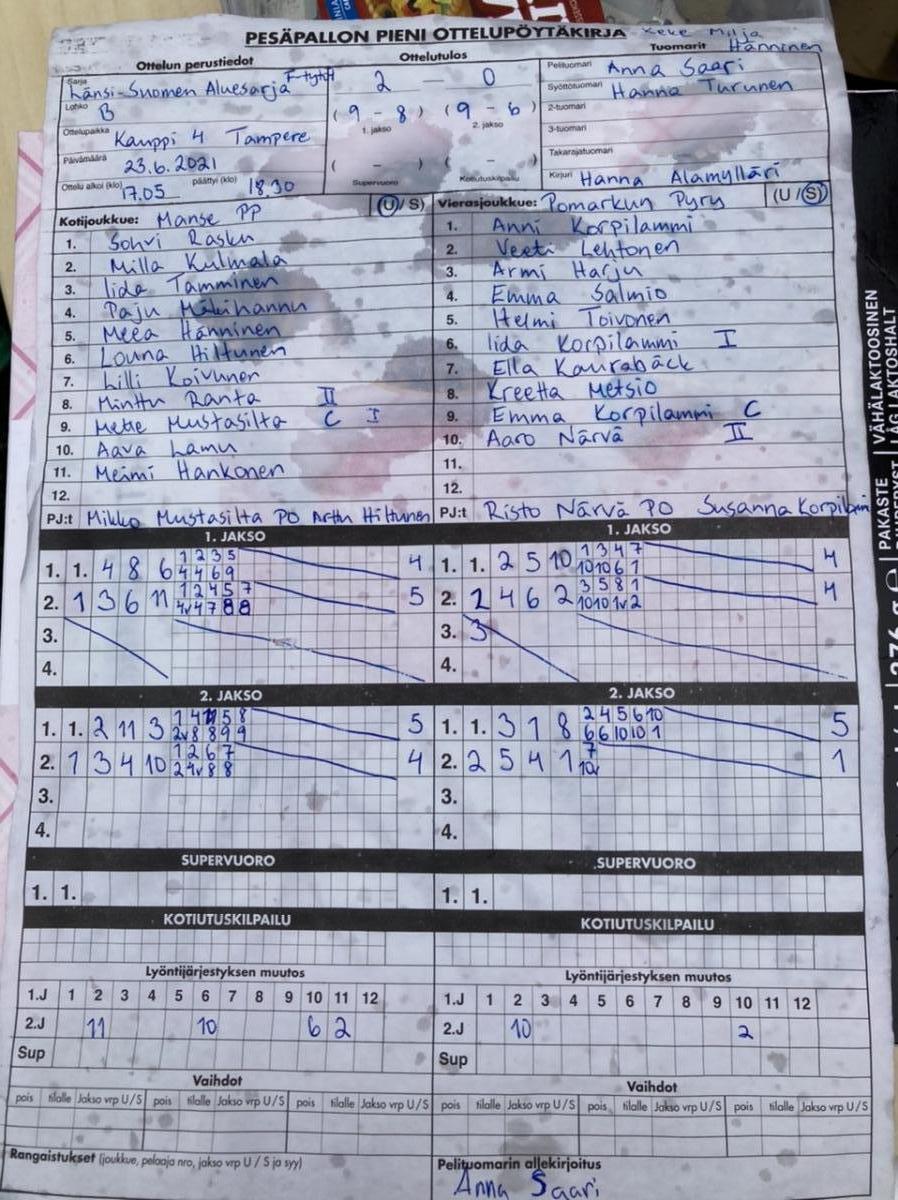 PESÄPALLON PIENI OTTELUPÖYTÄKIRJA
Keke Milja Hänninen
Ottelun perustiedot
Sarja Länsi-Suomen Aluesarja F-tytöt
Lohko B
Ottelupaikka Kauppi 4 Tampere
Päivämäärä 23.6.2021
Ottelu alkoi (klo) 17.05 päättyi (klo) 18.30
Ottelutulos
2 — 0
( 9 - 8 ) ( 9 - 6 )
1. jakso 2. jakso
( - ) ( - )
Supervuoro Kotiutuskilpailu
Tuomarit
Pelituomari Anna Saari
Syöttötuomari Hanna Turunen
2-tuomari
3-tuomari
Takarajatuomari
Kirjuri Hanna Alamylläri
Kotijoukkue: Manse PP (U/S)
1. Sohvi Rasku
2. Milla Kulmala
3. Iida Tamminen
4. Paju Mäkihannu
5. Meea Hänninen
6. Louna Hiltunen
7. Lilli Koivunen
8. Minttu Ranta II
9. Mette Mustasilta C I
10. Aava Lamu
11. Meimi Hankonen
12.
PJ:t Mikko Mustasilta PO Arttu Hiltunen
Vierasjoukkue: Pomarkun Pyry (U/S)
1. Anni Korpilammi
2. Veeti Lehtonen
3. Armi Harju
4. Emma Salmio
5. Helmi Toivonen
6. Iida Korpilammi I
7. Ella Kaurabäck
8. Kreetta Metsio
9. Emma Korpilammi C
10. Aaro Närvä II
11.
12.
PJ:t Risto Närvä PO Susanna Korpilammi
1. JAKSO
1. 1. 4 8 6 1 2 3 5 4
4 4 6 9
2. 1 3 6 11 1 2 4 5 7 5
4v 4 7 8 8
3.
4.
1. JAKSO
1. 1. 2 5 10 1 3 4 7 4
10 10 6 1
2. 2 4 6 2 3 5 8 1 4
10 10 1v 2
3. 3
4.
2. JAKSO
1. 1. 2 11 3 1 4 11 5 8 5
2v 8 8 9 9
2. 1 3 4 10 1 2 6 7 4
2 4v 8 8
3.
4.
2. JAKSO
1. 1. 3 1 8 2 4 5 6 10 5
6 6 10 10 1
2. 2 5 4 1 7 1
10v
3.
4.
SUPERVUORO
1. 1.
SUPERVUORO
1. 1.
KOTIUTUSKILPAILU
KOTIUTUSKILPAILU
Lyöntijärjestyksen muutos
1.J 1 2 3 4 5 6 7 8 9 10 11 12
2.J 11 10 6 2
Sup
Lyöntijärjestyksen muutos
1.J 1 2 3 4 5 6 7 8 9 10 11 12
2.J 10 2
Sup
Vaihdot
pois tilalle Jakso vrp U/S pois tilalle Jakso vrp U/S pois tilalle Jakso vrp U/S
Vaihdot
pois tilalle Jakso vrp U/S pois tilalle Jakso vrp U/S pois tilalle Jakso vrp U/S
Rangaistukset (joukkue, pelaaja nro, jakso vrp U / S ja syy)
Pelituomarin allekirjoitus
Anna Saari
PAKASTE
VÄHÄLAKTOOSINEN
LÅG LAKTOSHALT